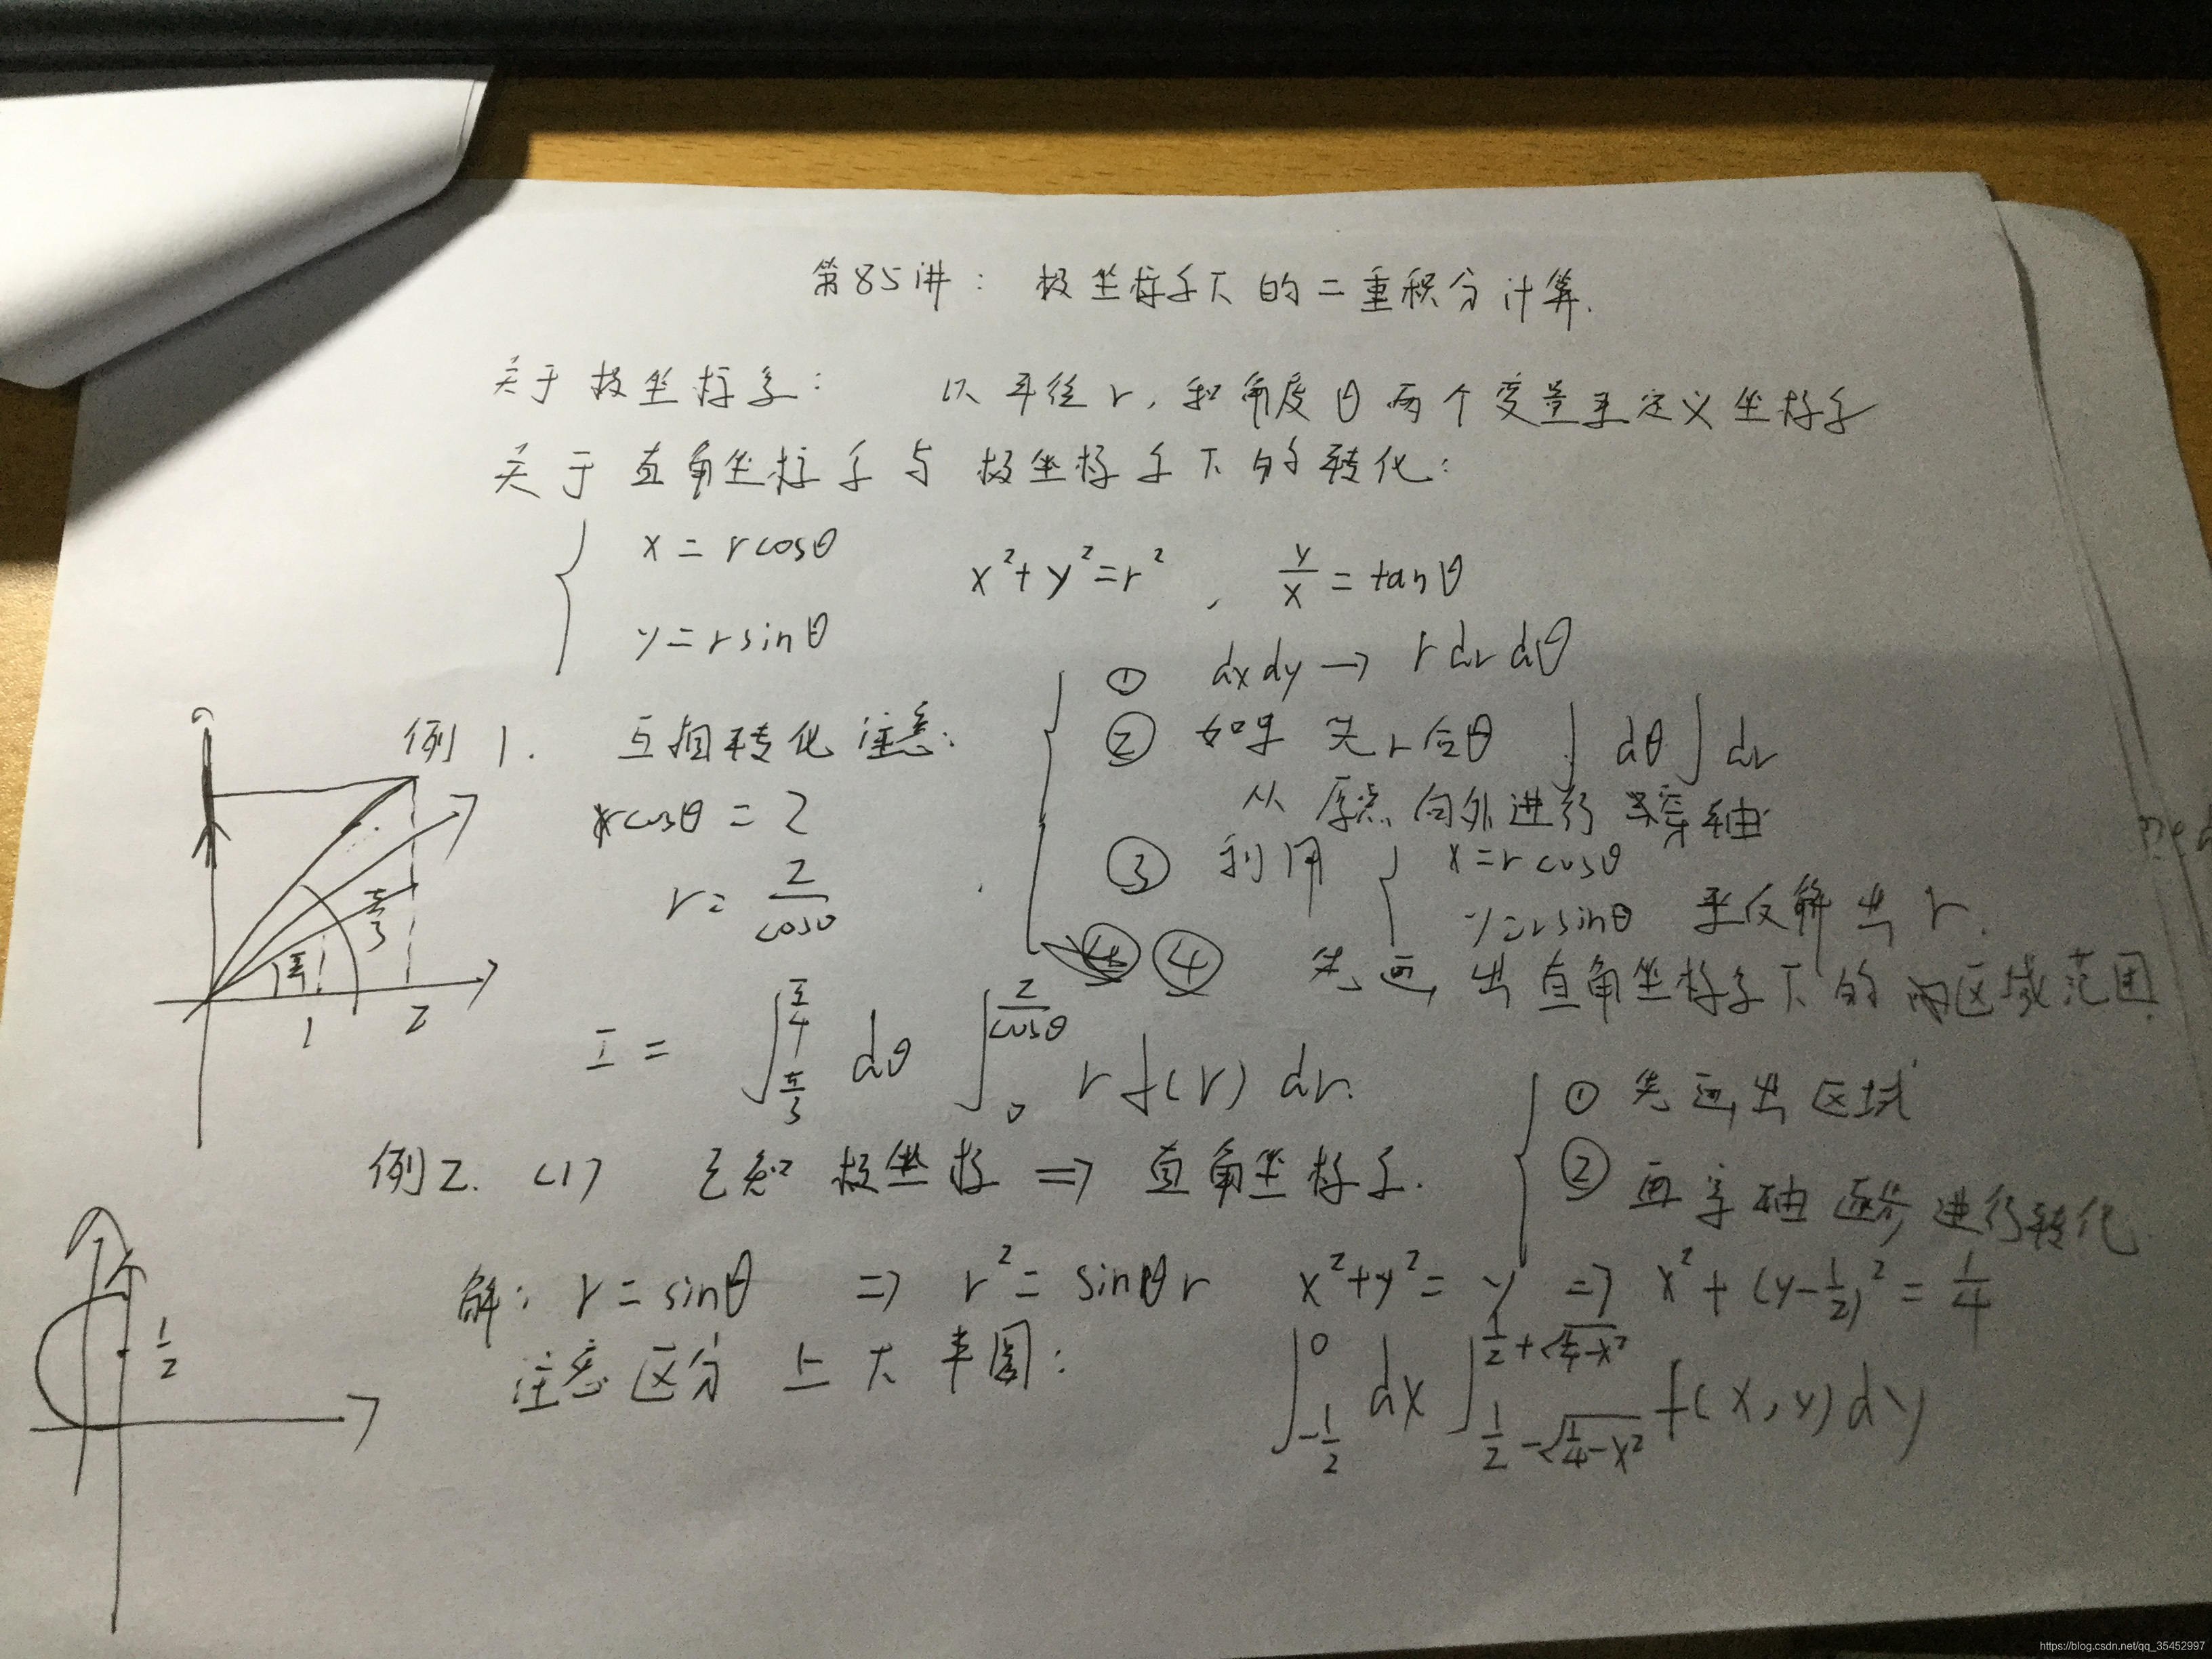 第85讲：极坐标系下的二重积分计算.
关于极坐标系：  以半径r，和角度θ两个变量来定义坐标系
关于直角坐标系与极坐标系下的转化：
{ x = rcosθ
y = rsinθ
x²+y²=r² , y/x = tanθ
例1. 互相转化注意：
① dxdy → rdrdθ
② 如果先r后θ ∫dθ∫dr
从原点向外进行穿轴
③ 利用 { x=rcosθ
y=rsinθ 来反解出r.
④ 先画出直角坐标系下的区域范围.
rcosθ = 2
r = 2/cosθ
π/3
π/4
1 2
I = ∫_{π/3}^{π/4} dθ ∫_0^{2/cosθ} r f(r) dr.
例2. (1) 已知极坐标 ⇒ 直角坐标系.
{ ① 先画出区域
② 再穿轴逐步进行转化
解：r=sinθ ⇒ r²=sinθr x²+y²=y ⇒ x²+(y-1/2)²=1/4
1/2
注意区分上下半圆： ∫_{-1/2}^0 dx ∫_{1/2-√(1/4-x²)}^{1/2+√(1/4-x²)} f(x,y)dy
https://blog.csdn.net/qq_35452997